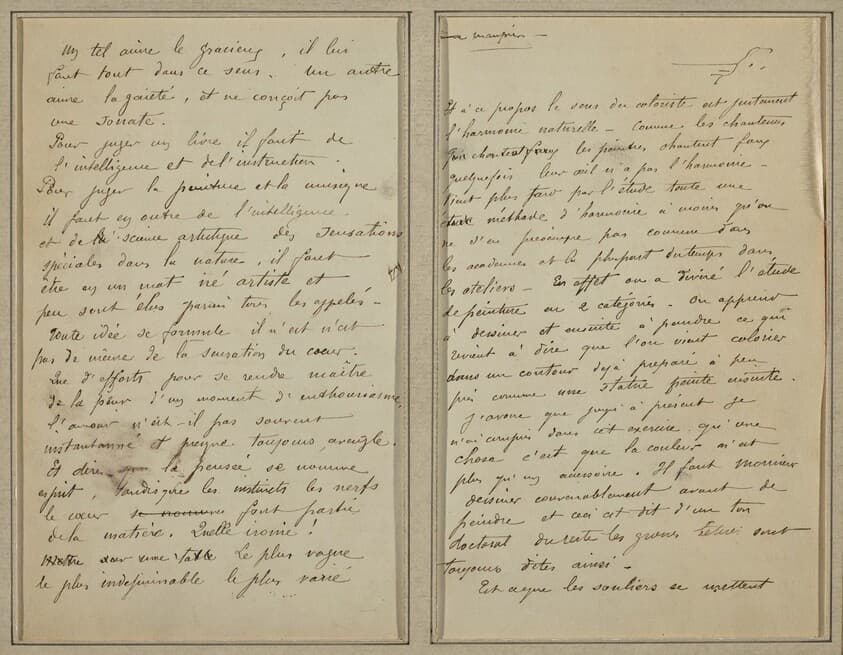 Un tel aime le gracieux, il lui
faut tout dans ce sens. Un autre
aime la gaieté, et ne conçoit pas
une sonate.
Pour juger un livre il faut de
l'intelligence et de l'instruction.
Pour juger la peinture et la musique
il faut en outre de l'intelligence
et de la science artistique des sensations
spéciales dans la nature, il faut
être en un mot né artiste et
peu sont élus parmi tous les appelés -
Toute idée se formule il n'en est
pas de même de la sensation du cœur.
Que d'efforts pour se rendre maître
de la peur d'un moment d'enthousiasme,
l'amour n'est-il pas souvent
instantanné et presque toujours aveugle.
Et dire que la pensée se nomme
esprit, tandisque les instincts les nerfs
le cœur se nomme font partie
de la matière. Quelle ironie!
Mettre sur une table Le plus vague
le plus indéfinissable le plus varié
Et à ce propos le sens du coloriste est justement
l'harmonie naturelle - comme les chanteurs
qui chantent faux les peintres chantent faux
quelquefois leur œil n'a pas l'harmonie -
Vient plus tard par l'étude toute une
méthode d'harmonie à moins qu'on
ne s'en préoccupe pas comme dans
les academies et la plupart du temps dans
les ateliers - En effet on a divisé l'étude
de peinture en 2 catégories. On apprend
à dessiner et ensuite à peindre ce qui
revient à dire que l'on vient colorier
dans un contour déjà preparé à peu
près comme une statue peinte ensuite.
J'avoue que jusqu'à présent je
n'ai compris dans cet exercice qu'une
chose c'est que la couleur n'est
plus qu'un accessoire. Il faut Monsieur
dessiner convenablement avant de
peindre et ceci est dit d'un ton
doctoral du reste les grosses bêtises sont
toujours dites ainsi -
Est ce que les souliers se mettent